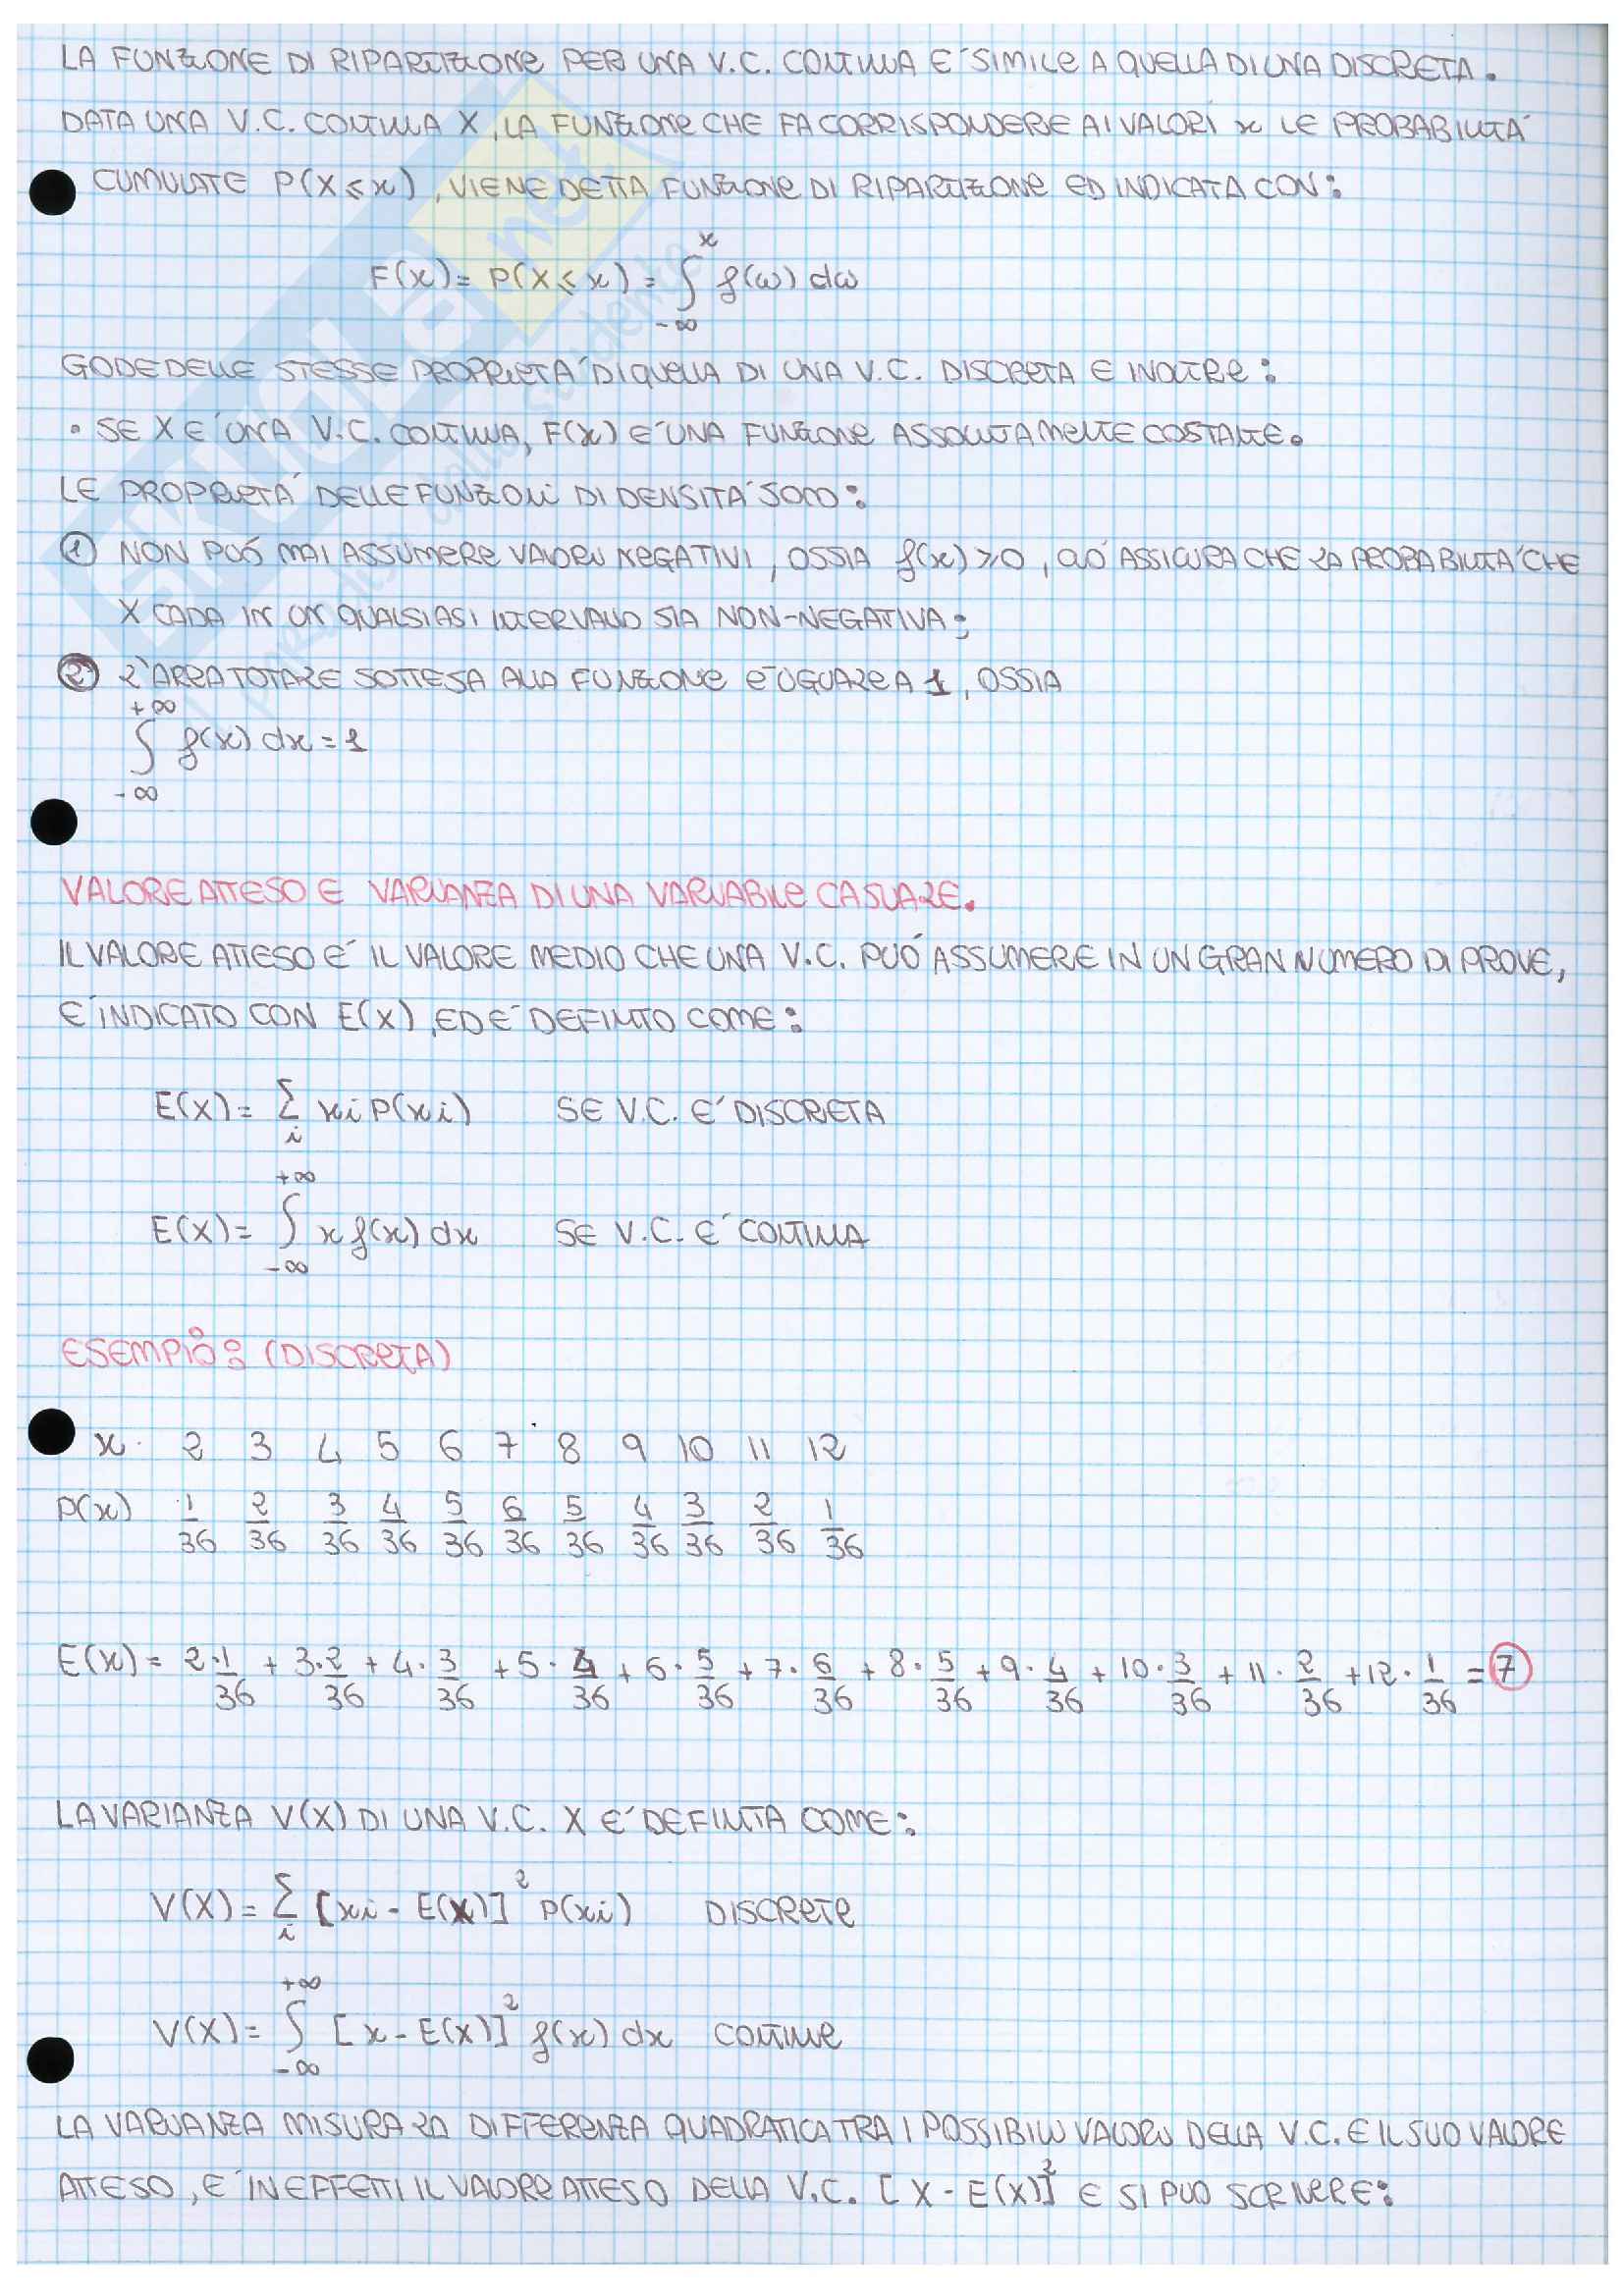 LA FUNZIONE DI RIPARTIZIONE PER UNA V.C. CONTINUA E' SIMILE A QUELLA DI UNA DISCRETA.
DATA UNA V.C. CONTINUA X, LA FUNZIONE CHE FA CORRISPONDERE AI VALORI x LE PROBABILITA'
CUMULATE P(X⩽x), VIENE DETTA FUNZIONE DI RIPARTIZIONE ED INDICATA CON:
F(x) = P(X⩽x) = ∫_{-∞}^{x} f(ω) dω
GODE DELLE STESSE PROPRIETA' DI QUELLA DI UNA V.C. DISCRETA E INOLTRE:
• SE X E' UNA V.C. CONTINUA, F(x) E' UNA FUNZIONE ASSOLUTAMENTE COSTANTE.
LE PROPRIETA' DELLE FUNZIONI DI DENSITA' SONO:
① NON PUÓ MAI ASSUMERE VALORI NEGATIVI, OSSIA f(x)⩾0, CIÓ ASSICURA CHE LA PROBABILITA' CHE
X CADA IN UN QUALSIASI INTERVALLO SIA NON-NEGATIVA;
② L'AREA TOTALE SOTTESA ALLA FUNZIONE E' UGUALE A 1, OSSIA
∫_{-∞}^{+∞} f(x) dx = 1
VALORE ATTESO E VARIANZA DI UNA VARIABILE CASUALE.
IL VALORE ATTESO E' IL VALORE MEDIO CHE UNA V.C. PUÓ ASSUMERE IN UN GRAN NUMERO DI PROVE,
E' INDICATO CON E(X), ED E' DEFINITO COME:
E(X) = Σ_i xi P(xi) SE V.C. E' DISCRETA
E(X) = ∫_{-∞}^{+∞} x f(x) dx SE V.C. E' CONTINUA
ESEMPIO: (DISCRETA)
x 2 3 4 5 6 7 8 9 10 11 12
P(x) 1/36 2/36 3/36 4/36 5/36 6/36 5/36 4/36 3/36 2/36 1/36
E(x) = 2·1/36 + 3·2/36 + 4·3/36 + 5·4/36 + 6·5/36 + 7·6/36 + 8·5/36 + 9·4/36 + 10·3/36 + 11·2/36 + 12·1/36 = 7
LA VARIANZA V(X) DI UNA V.C. X E' DEFINITA COME:
V(X) = Σ_i [xi - E(X)]² P(xi) DISCRETE
V(X) = ∫_{-∞}^{+∞} [x - E(X)]² f(x) dx CONTINUE
LA VARIANZA MISURA LA DIFFERENZA QUADRATICA TRA I POSSIBILI VALORI DELLA V.C. E IL SUO VALORE
ATTESO, E' IN EFFETTI IL VALORE ATTESO DELLA V.C. [X - E(X)]² E SI PUO SCRIVERE: